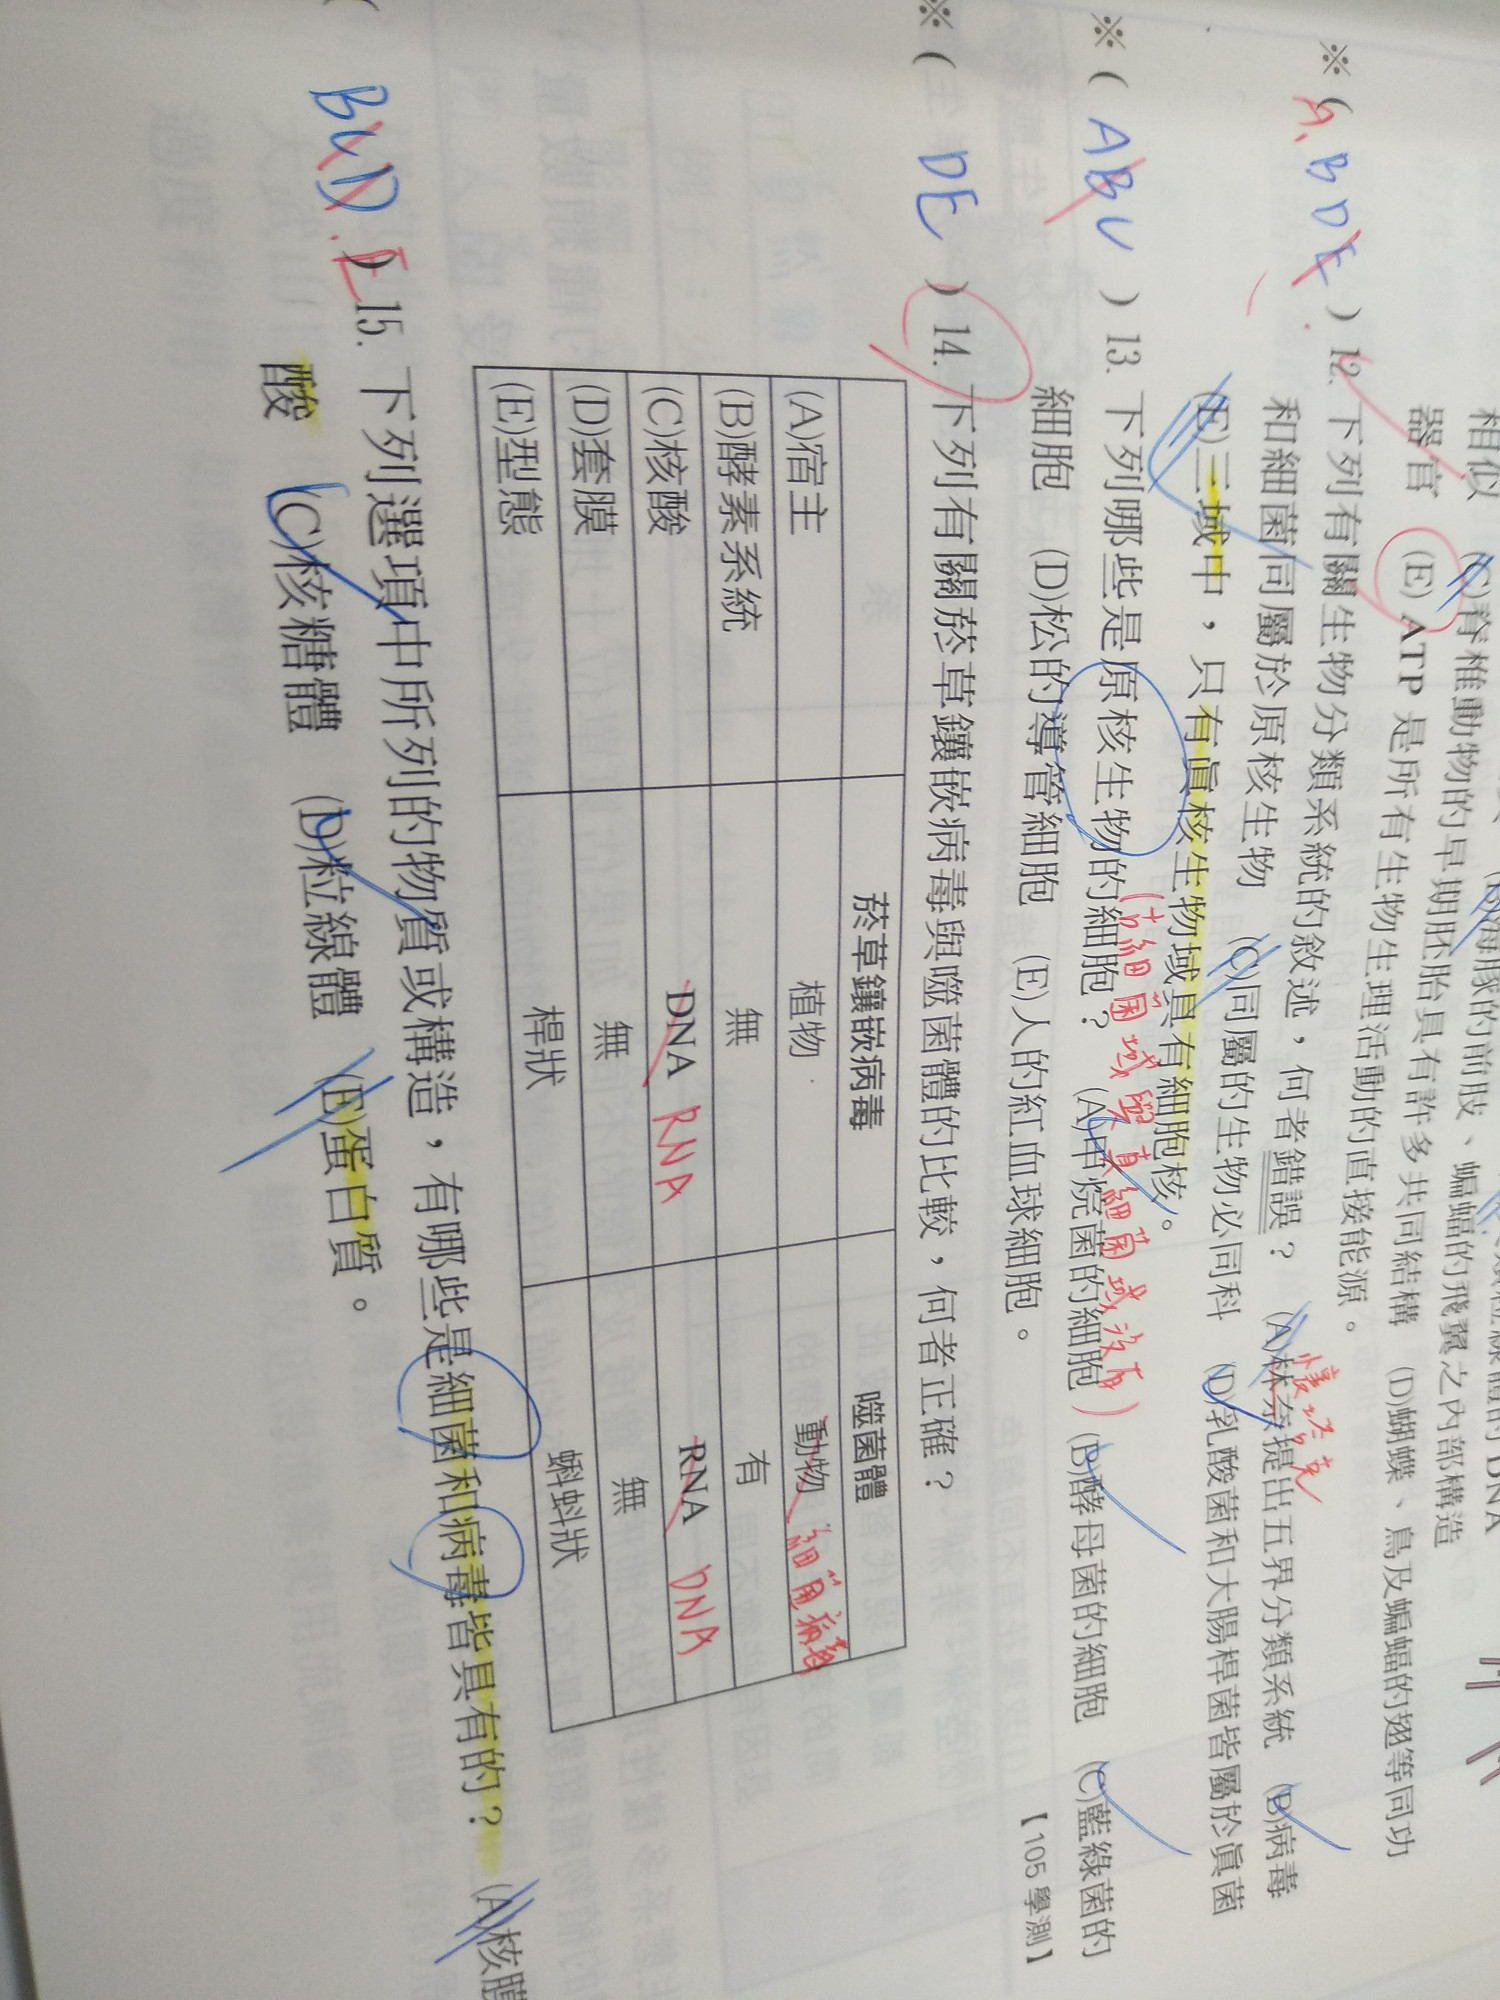 相似 (C)脊椎動物的早期胚胎具有許多共同結構 (D)蝴蝶、鳥及蝙蝠的翅等同功
器官 (E) ATP 是所有生物生理活動的直接能源。
※( A、BDE ) 12. 下列有關生物分類系統的敘述,何者錯誤? (A)林奈提出五界分類系統 (B)病毒
和細菌同屬於原核生物 (C)同屬的生物必同科 (D)乳酸菌和大腸桿菌皆屬於真菌
(E)三域中,只有真核生物域具有細胞核。
※( ABC ) 13. 下列哪些是原核生物的細胞? (A)甲烷菌的細胞 (B)酵母菌的細胞 (C)藍綠菌的
細胞 (D)松的導管細胞 (E)人的紅血球細胞。 【105 學測】
※( DE ) 14. 下列有關菸草鑲嵌病毒與噬菌體的比較,何者正確?
菸草鑲嵌病毒 噬菌體
(A)宿主 植物 動物
(B)酵素系統 無 有
(C)核酸 DNA RNA RNA DNA
(D)套膜 無 無
(E)型態 桿狀 蝌蚪狀
( BCD、E ) 15. 下列選項中所列的物質或構造,有哪些是細菌和病毒皆具有的? (A)核膜
酸 (C)核糖體 (D)粒線體 (E)蛋白質。